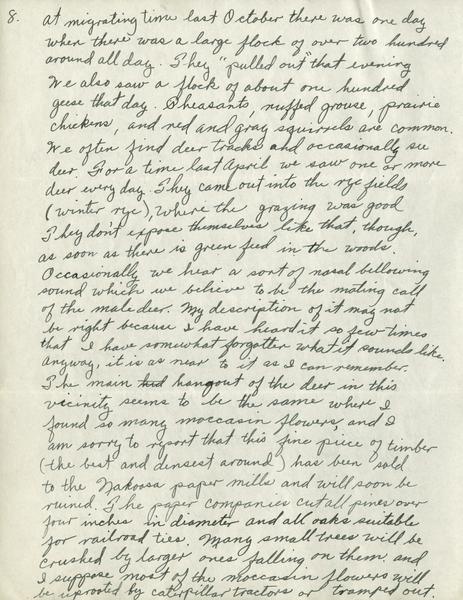 8. at migrating time last October there was one day
when there was a large flock of over two hundred
around all day. They "pulled out" that evening
We also saw a flock of about one hundred
geese that day. Pheasants, ruffed grouse, prairie
chickens, and red and gray squirrels are common.
We often find deer tracks and occasionally see
deer. For a time last April we saw one or more
deer every day. They came out into the rye fields
(winter rye), where the grazing was good
They don't expose themselves like that, though,
as soon as there is green feed in the woods.
Occasionally we hear a sort of nasal bellowing
sound which we believe to be the mating call
of the male deer. My description of it may not
be right because I have heard it so few times
that I have somewhat forgotten what it sounds like.
Anyway, it is as near to it as I can remember.
The main hangout of the deer in this
vicinity seems to be the same where I
found so many moccasin flowers, and I
am sorry to report that this fine piece of timber
(the best and densest around) has been sold
to the Nakoosa paper mills and will soon be
ruined. The paper companies cut all pines over
four inches in diameter and all oaks suitable
for railroad ties. Many small trees will be
crushed by larger ones falling on them. and
I suppose most of the moccasin flowers will
be uprooted by caterpillar tractors or tramped out.